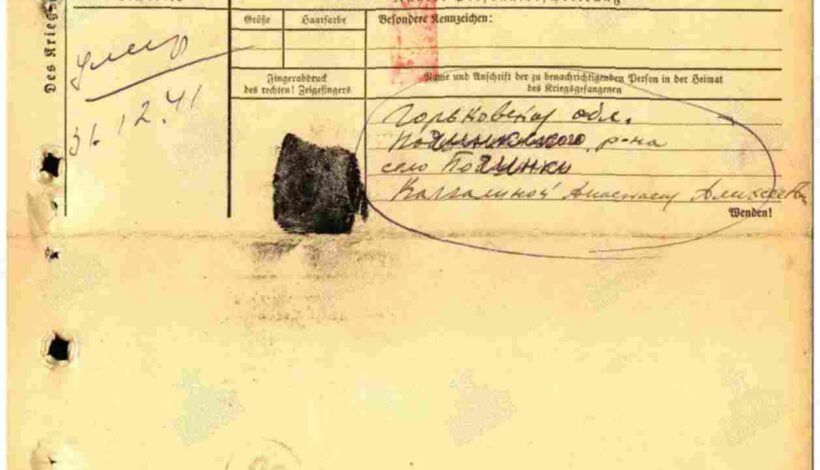 Des Kriegs
Größe
Haarfarbe
Besondere Kennzeichen:
умер
31.12.41
Fingerabdruck
des rechten! Zeigefingers
Name und Anschrift der zu benachrichtigenden Person in der Heimat
des Kriegsgefangenen
Горьковская обл.
Починковского р-на
село Починки
Каргалиной Анастасии Алексеевн
Wenden!